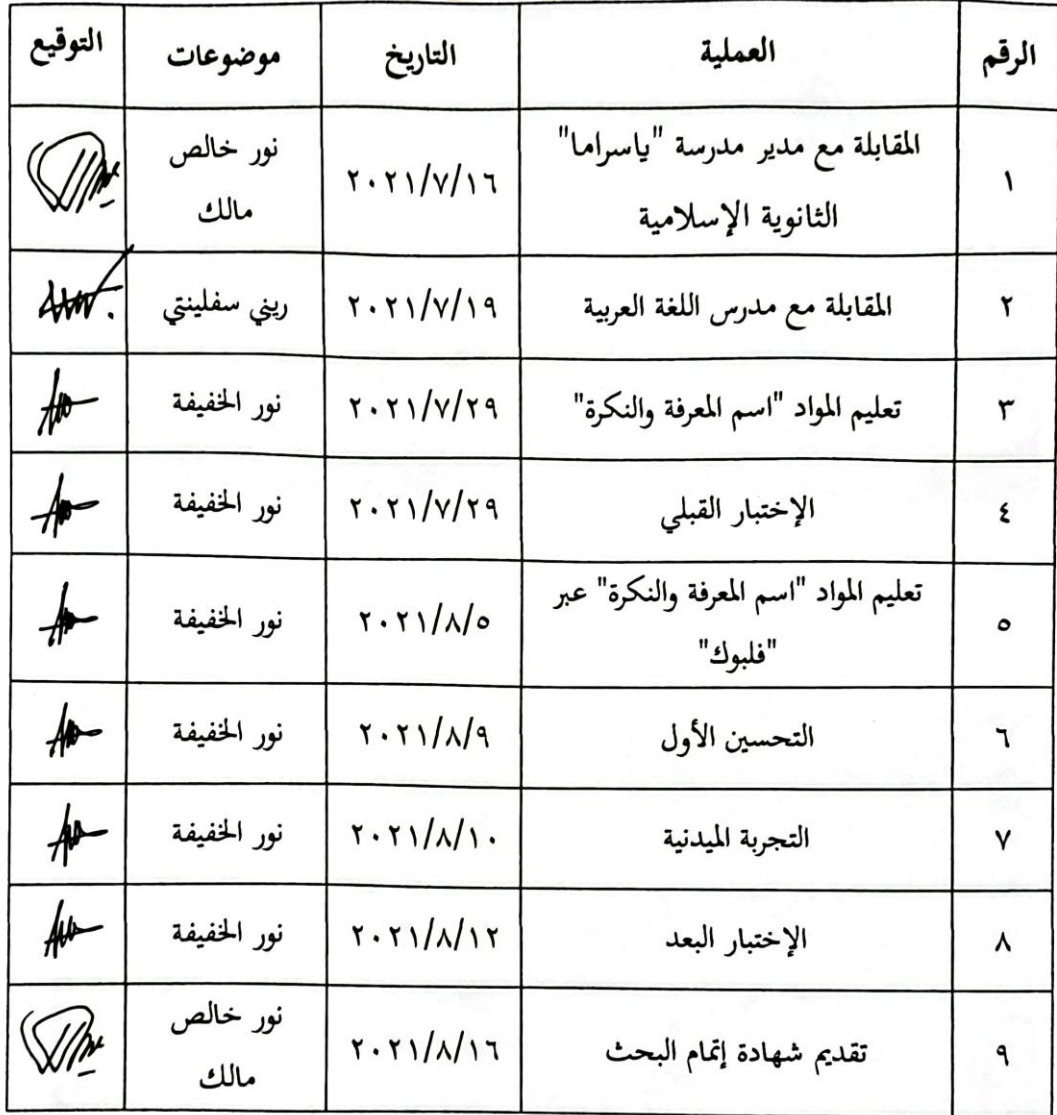 الرقم العملية التاريخ موضوعات التوقيع
١ المقابلة مع مدير مدرسة "ياسراما" ٢٠٢١/٧/١٦ نور خالص
الثانوية الإسلامية مالك
٢ المقابلة مع مدرس اللغة العربية ٢٠٢١/٧/١٩ ريني سفلينتي
٣ تعليم المواد "اسم المعرفة والنكرة" ٢٠٢١/٧/٢٩ نور الخفيفة
٤ الإختبار القبلي ٢٠٢١/٧/٢٩ نور الخفيفة
٥ تعليم المواد "اسم المعرفة والنكرة" عبر ٢٠٢١/٨/٥ نور الخفيفة
"فلبوك"
٦ التحسين الأول ٢٠٢١/٨/٩ نور الخفيفة
٧ التجربة الميدنية ٢٠٢١/٨/١٠ نور الخفيفة
٨ الإختبار البعد ٢٠٢١/٨/١٢ نور الخفيفة
٩ تقديم شهادة إتمام البحث ٢٠٢١/٨/١٦ نور خالص
مالك